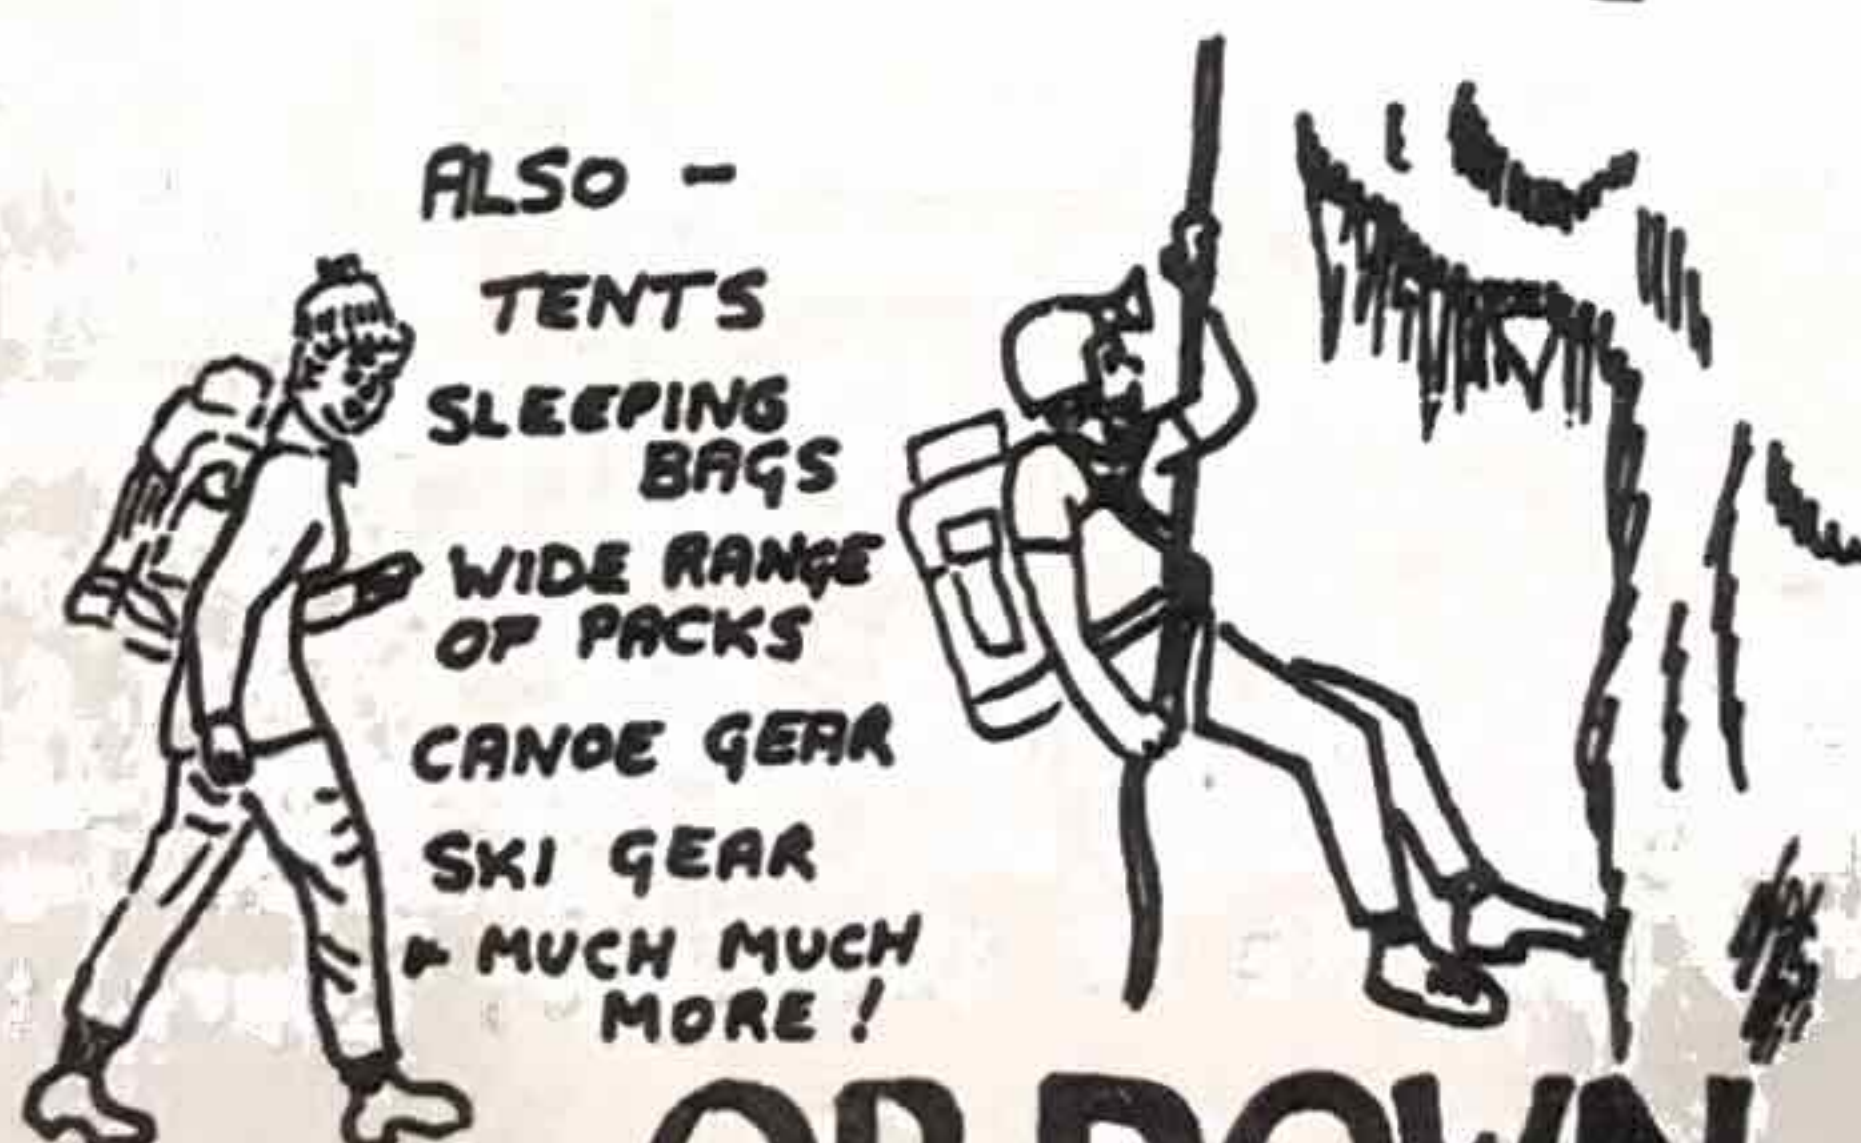 ALSO -
TENTS
SLEEPING
BAGS
WIDE RANGE
OF PACKS
CANOE GEAR
SKI GEAR
& MUCH MUCH
MORE!
OR DOWN